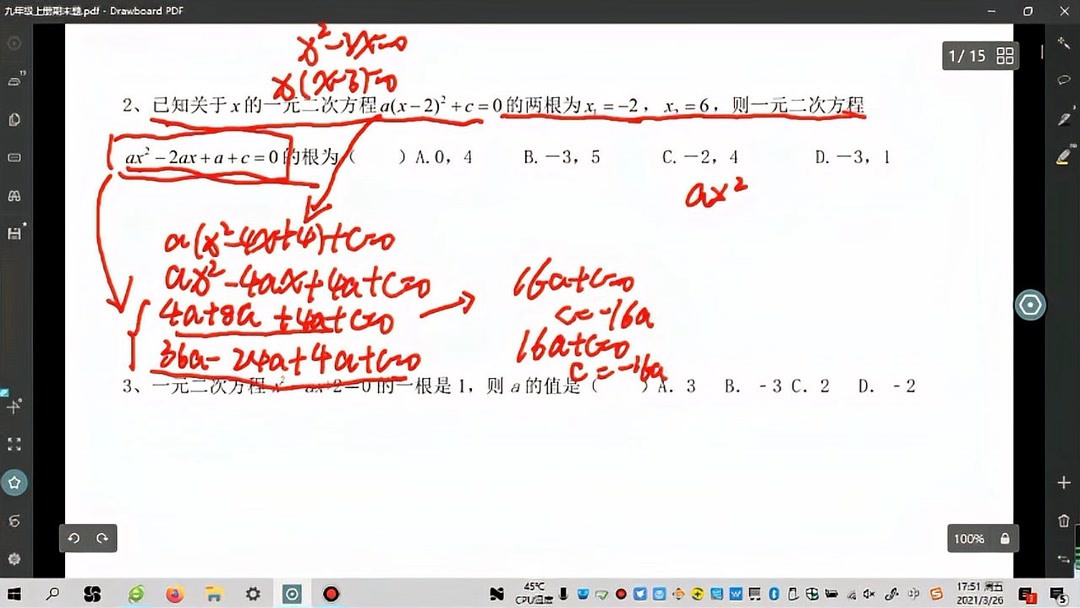 九年级上册期末题.pdf - Drawboard PDF
x²-3x=0
x(x-3)=0
1 / 15
2、已知关于 x 的一元二次方程 a(x-2)²+c=0 的两根为 x₁=-2，x₂=6，则一元二次方程
ax²-2ax+a+c=0 的根为（ ）A.0，4 B.-3，5 C.-2，4 D.-3，1
ax²
a(x²-4x+4)+c=0
ax²-4ax+4a+c=0
4a+8a+4a+c=0
36a-24a+4a+c=0
16a+c=0
c=-16a
16a+c=0
c=-16a
3、一元二次方程 的一根是 1，则 a 的值是（ ）A. 3 B. -3 C. 2 D. -2
100%
45℃
CPU温度
中
17:51 周五
2021/3/26